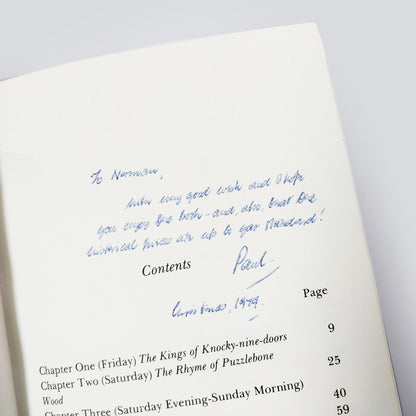 To Norman,
with every good wish, and I hope
you enjoy the book - and, also, that the
historical pieces are up to your standard!
Contents
Paul.
Christmas, 1979.
Page
Chapter One (Friday) The Kings of Knocky-nine-doors 9
Chapter Two (Saturday) The Rhyme of Puzzlebone 25
Wood
Chapter Three (Saturday Evening-Sunday Morning) 40
59